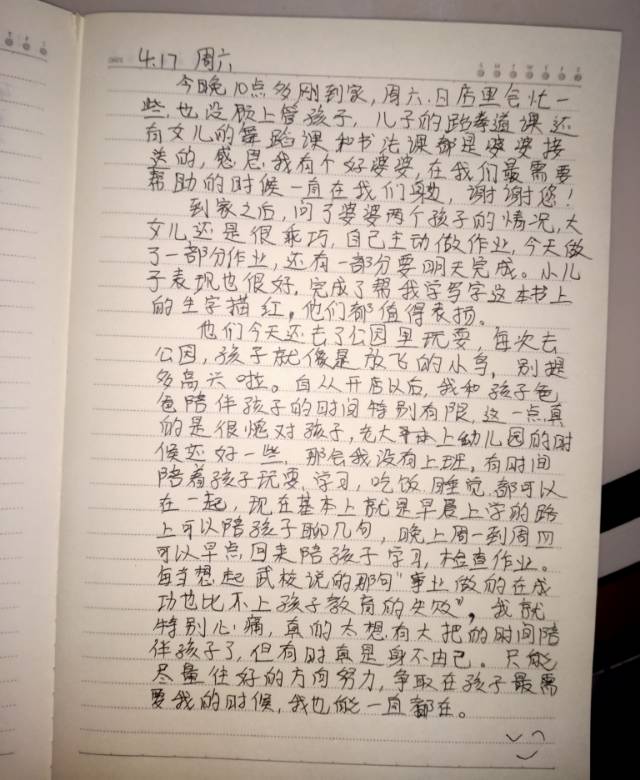 4.17 周六
今晚10点多刚到家,周六.日店里会忙一
些,也没顾上管孩子,儿子的跆拳道课还
有女儿的舞蹈课和书法课都是婆婆接
送的,感恩我有个好婆婆,在我们最需要
帮助的时候一直在我们身边,谢谢您!
到家之后,问了婆婆两个孩子的情况,大
女儿还是很乖巧,自己主动做作业,今天做
了一部分作业,还有一部分要明天完成。小儿
子表现也很好,完成了帮我学写字这本书上
的生字描红,他们都值得表扬。
他们今天还去了公园里玩耍,每次去
公园,孩子就像是放飞的小鸟,别提
多高兴啦。自从开店以后,我和孩子爸
爸陪伴孩子的时间特别有限,这一点真
的是很愧对孩子,老大基本上幼儿园的时
候还好一些,那会我没有上班,有时间
陪着孩子玩耍.学习,吃饭.睡觉.都可以
在一起,现在基本上就是早晨上学的路
上可以陪孩子聊几句,晚上周一到周四
可以早点回来陪孩子学习,检查作业。
每当想起武校说的那句"事业做的在成
功也比不上孩子教育的失败",我就
特别心痛,真的太想有大把的时间陪
伴孩子了,但有时真是身不由己。只能
尽量往好的方向努力,争取在孩子最需
要我的时候,我也能一直都在。